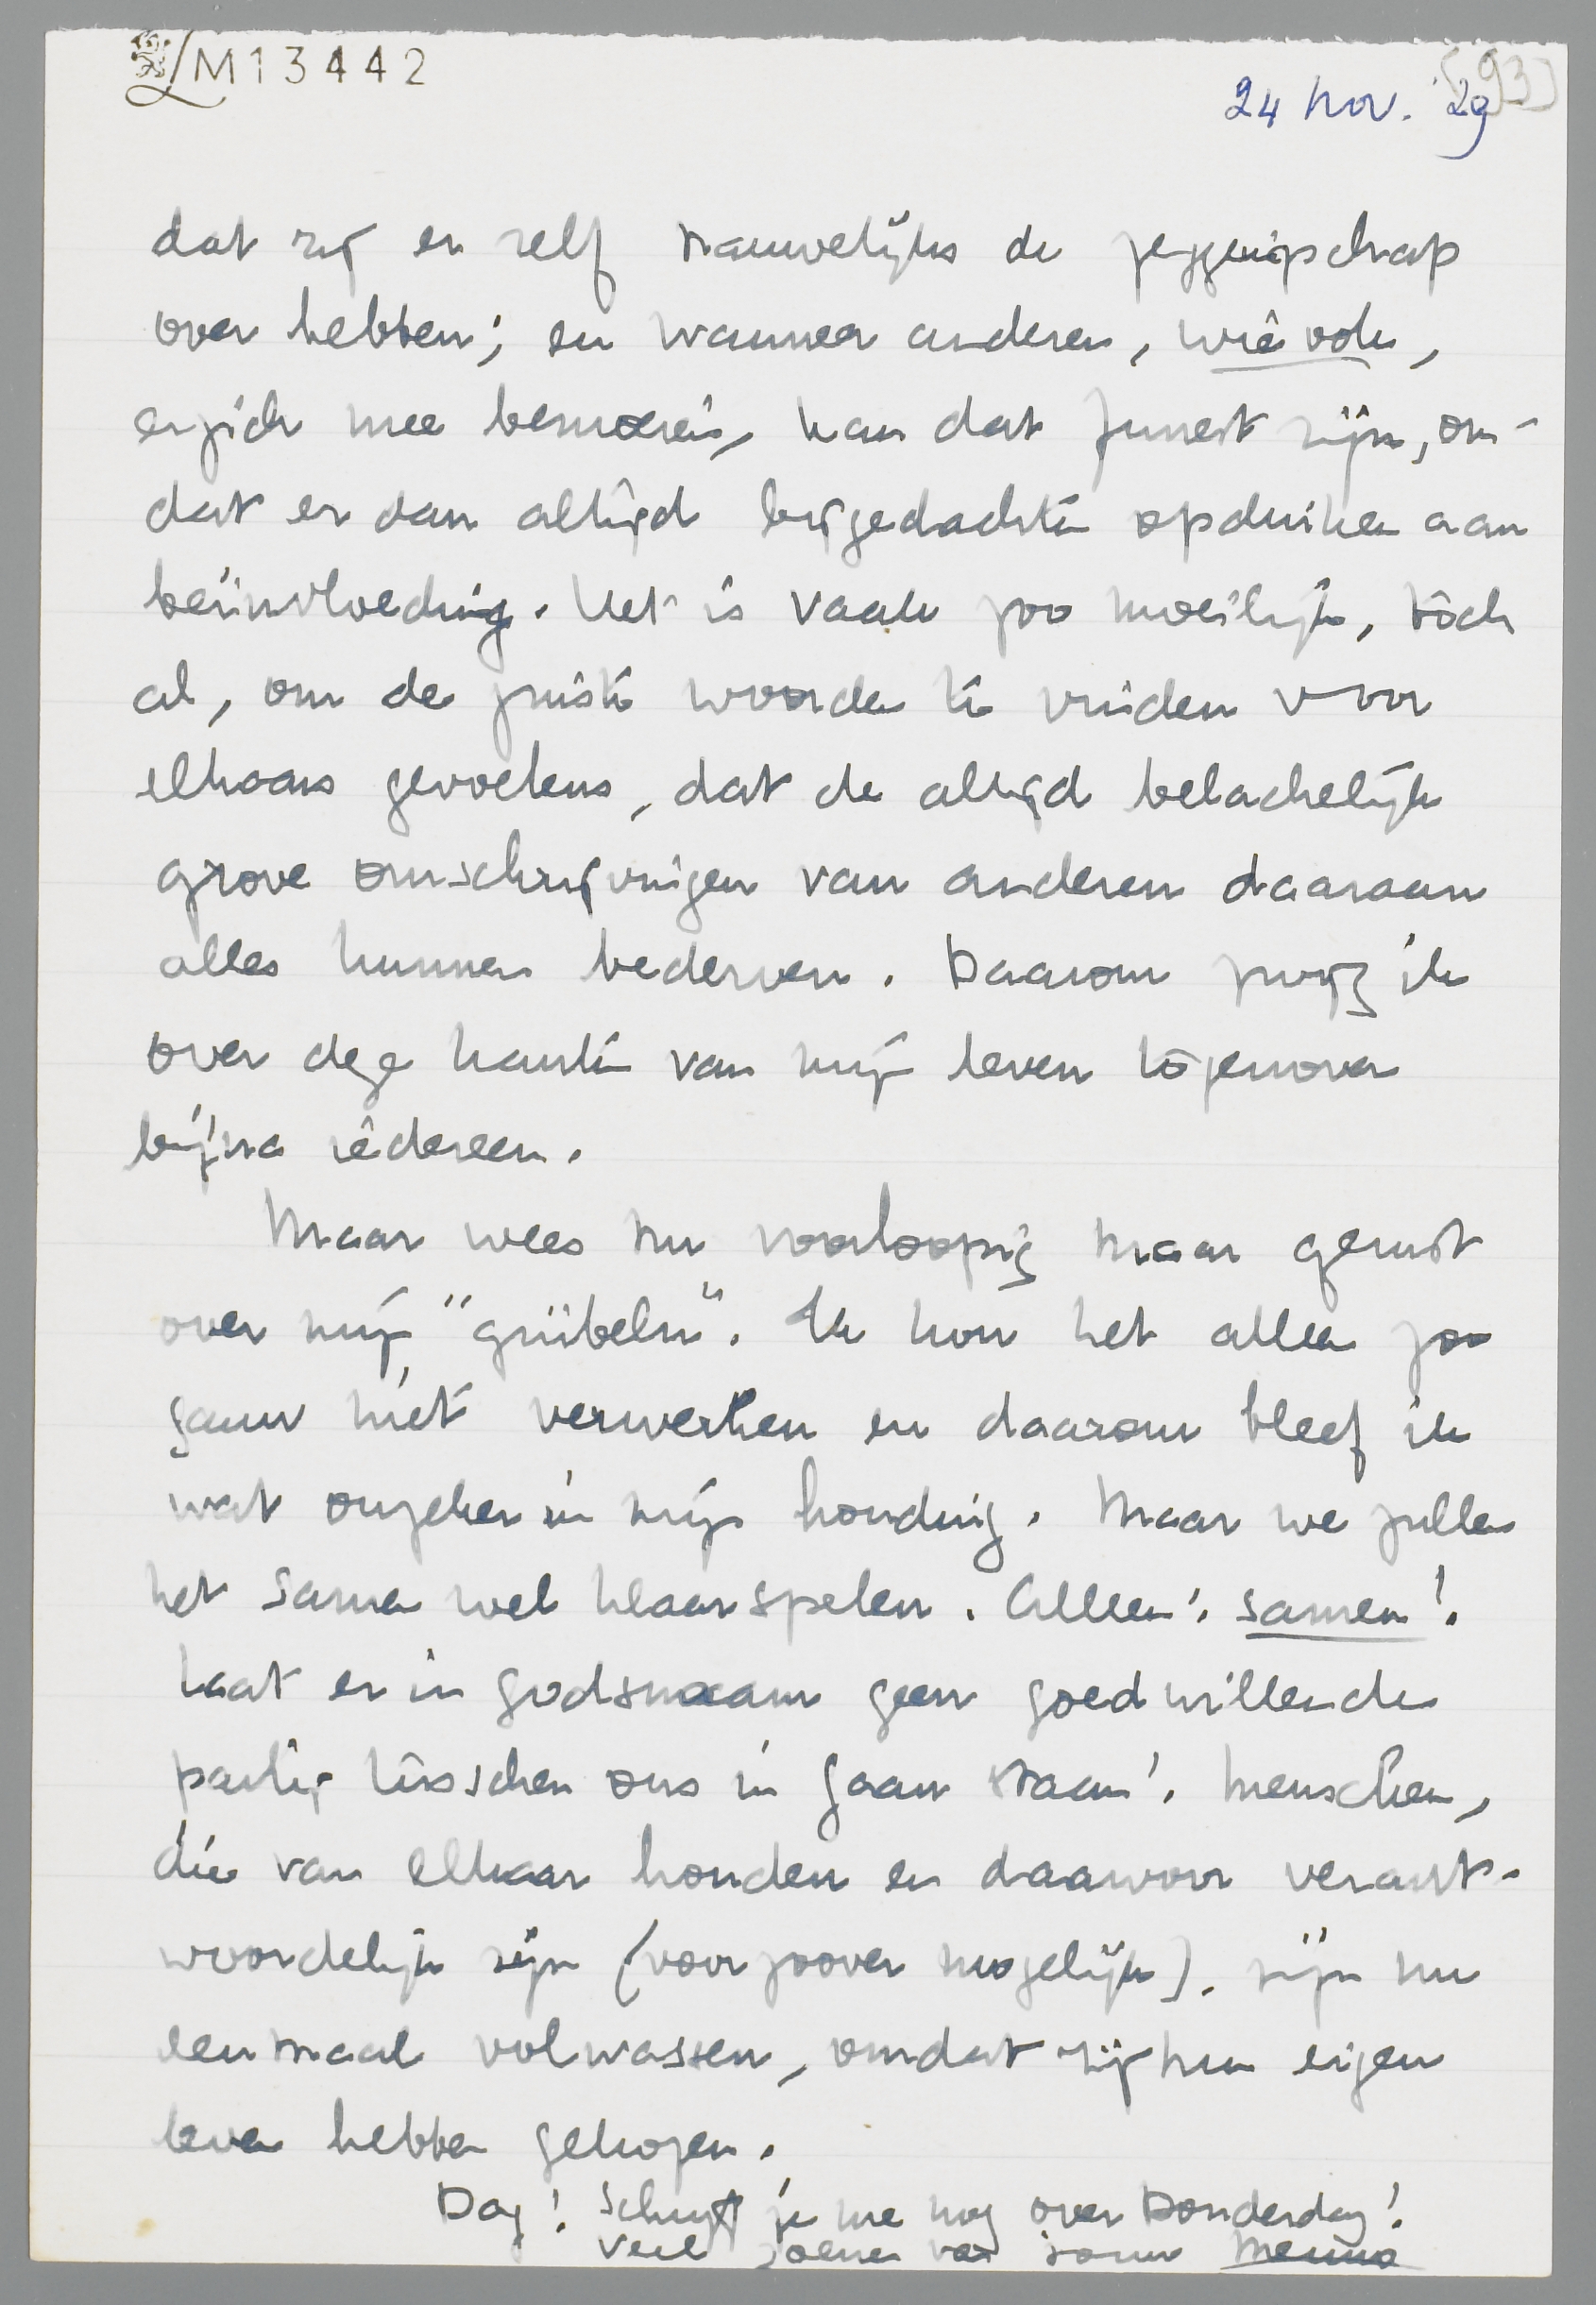 LM13442
[93]
24 Nov. '29
dat zij er zelf nauwelijks de zeggenschap
over hebben; en wanneer anderen, wie ook,
er zich mee bemoeien, kan dat funest zijn, om-
dat er dan altijd bijgedachten opduiken aan
beïnvloeding. Het is vaak zoo moeilijk, toch
al, om de juiste woorden te vinden voor
elkaars gevoelens, dat de altijd belachelijk
grove omschrijvingen van anderen daaraan
alles kunnen bederven. Daarom zwijg ik
over deze kanten van mijn leven tegenover
bijna iedereen.
Maar wees nu voorloopig maar gerust
over mijn "grübeln". Ik kon het alleen zoo
gauw niet verwerken en daarom bleef ik
wat onzeker in mijn houding. Maar we zullen
het samen wel klaarspelen. Alleen: samen!
Laat er in godsnaam geen goedwillende
partij tusschen ons in gaan staan! Menschen,
die van elkaar houden en daarvoor verant-
woordelijk zijn (voor zoover mogelijk), zijn nu
eenmaal volwassen, omdat zij hun eigen
leven hebben gekozen.
Dag! Schrijf je me nog over Donderdag!
Veel zoenen van jouw Menno